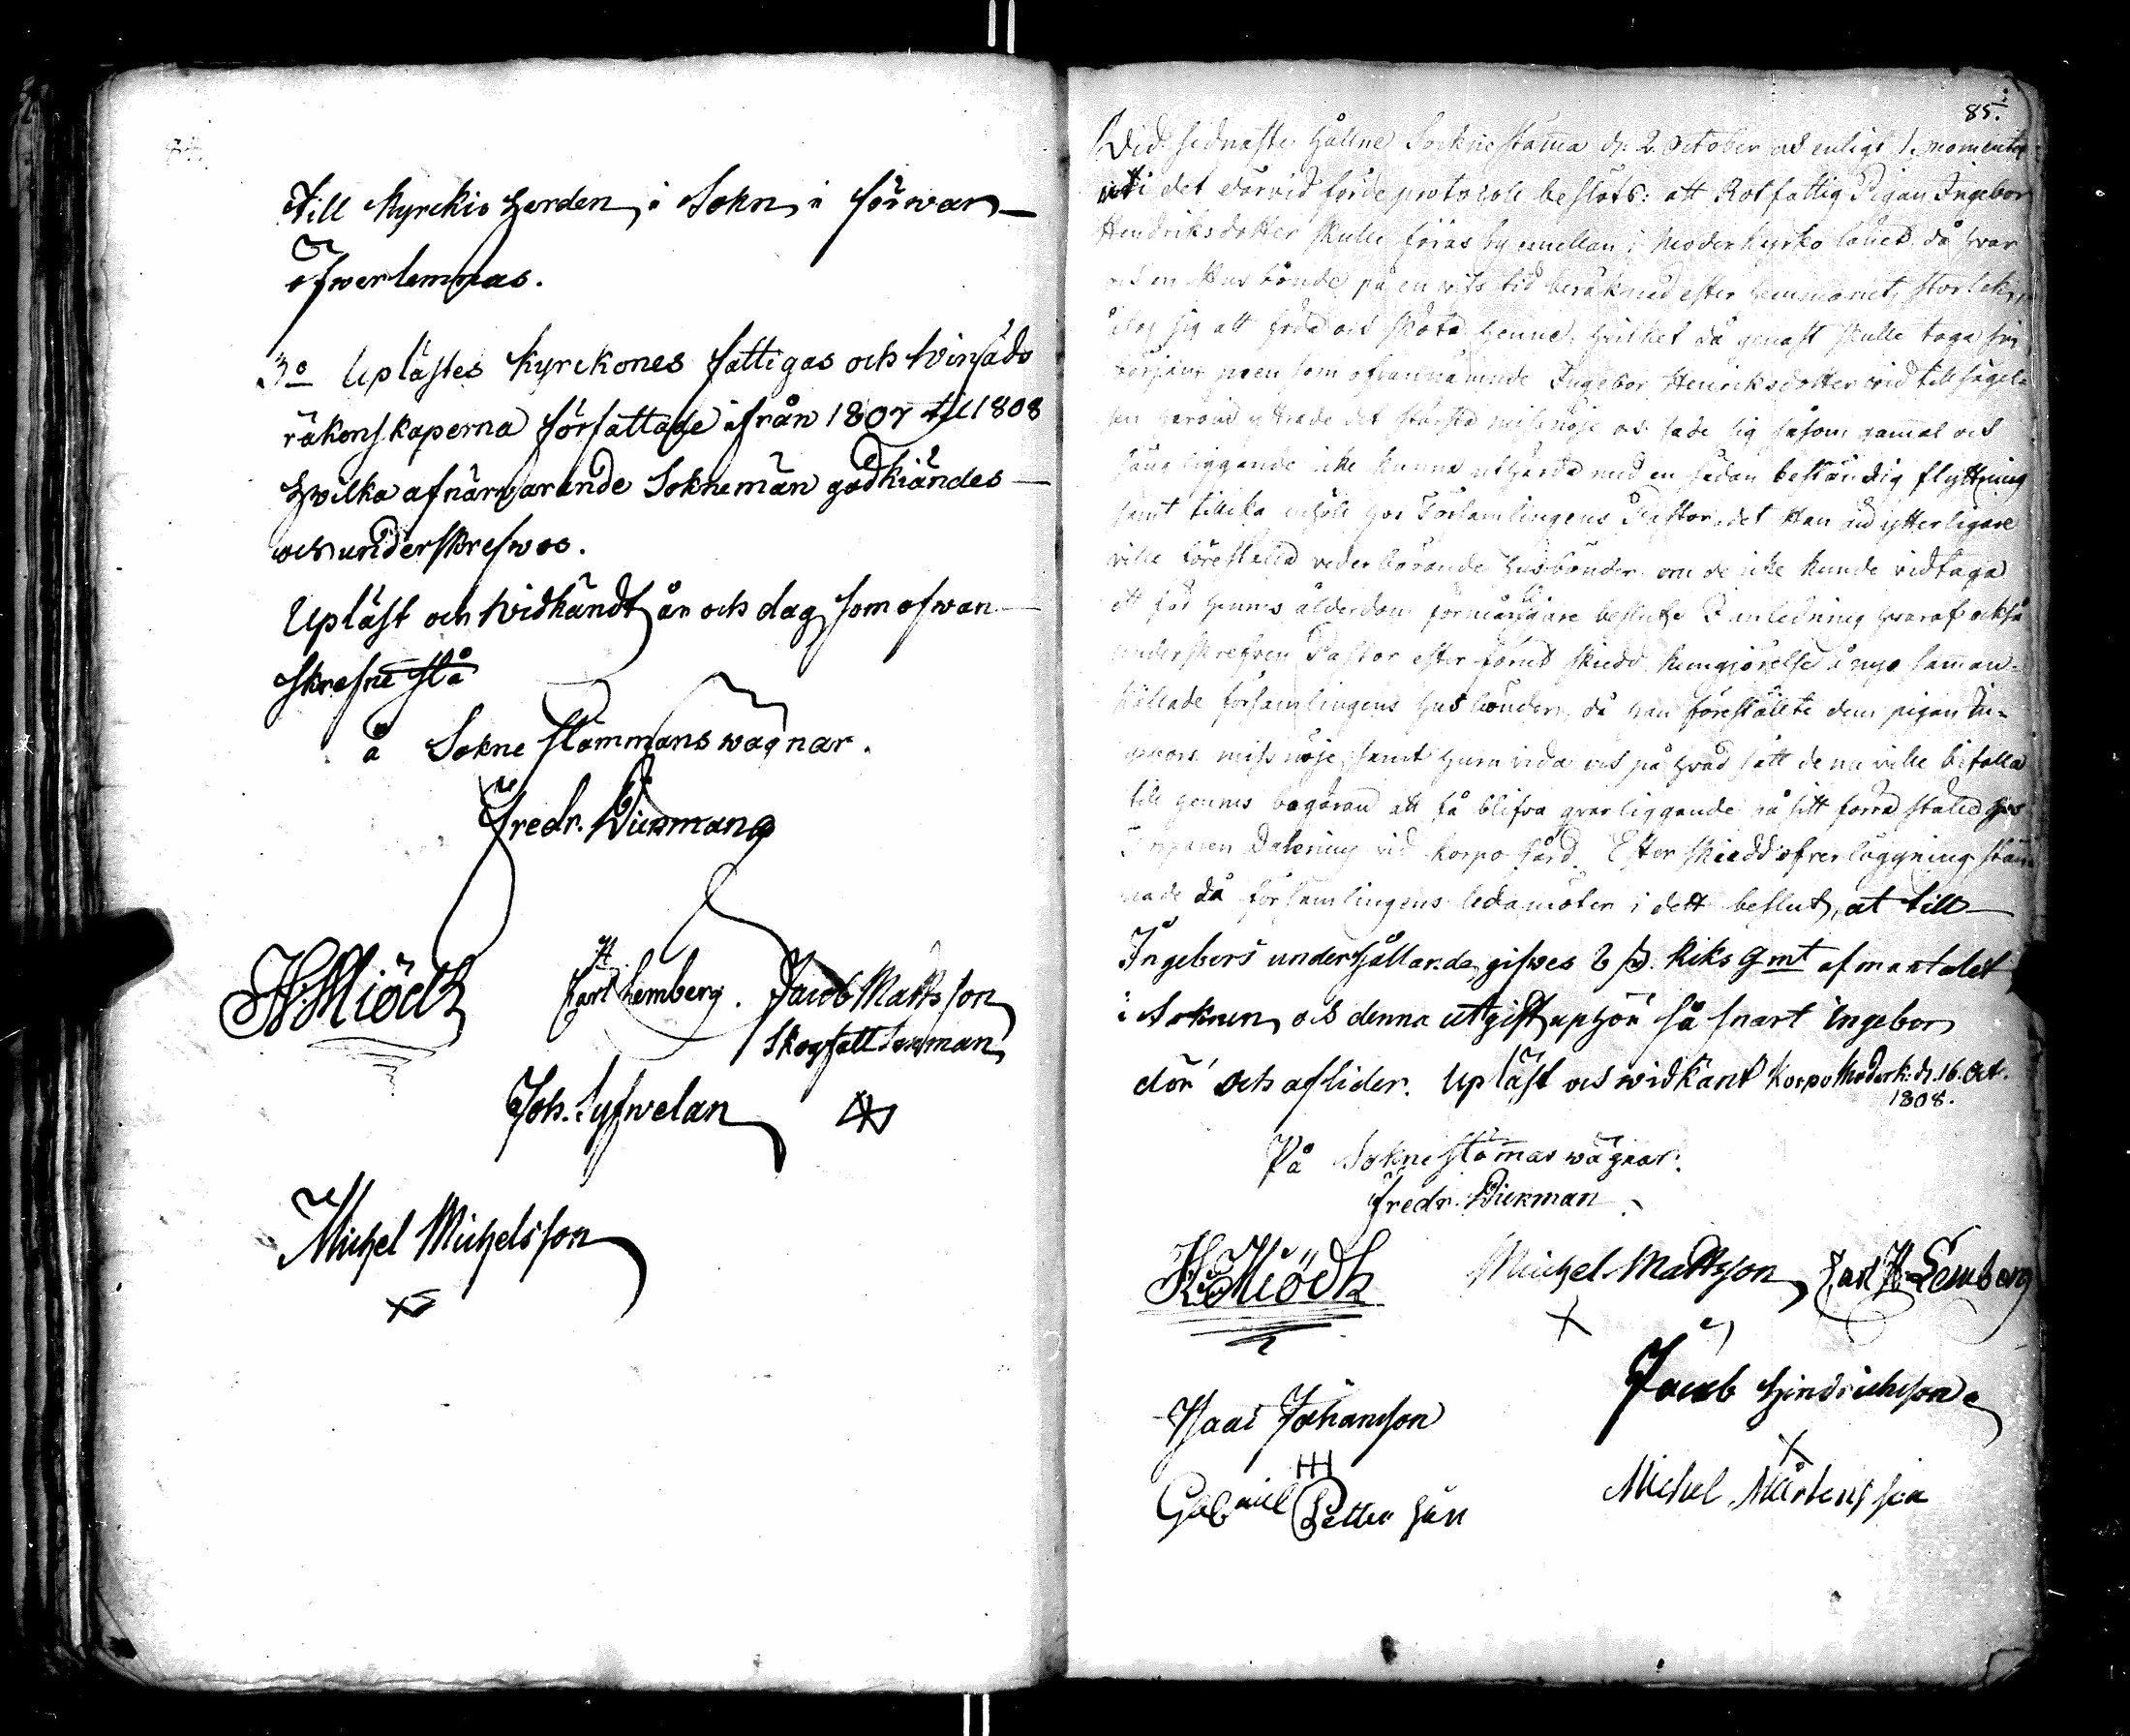 84.
till kyrckio Herden i Sokn i förwar
öfwerlemnas.
3o Uplästes kyrckones fattigas och Winsäds
räkenskaperna författade ifrån 1807 till 1808
hwilka af närwarande Soknemän godkiändes
och underskrefwos.
Upläst och Widkändt år och dag som ofwan
skrefne stå
å Sokne stämmans wägnar.
Fredr. Wickman
H. Miödh Carl H Lemberg. Jacob Mattsson
Skogfall Lexman
Joh. Lyfwelan
Michel Michelsson
85.
Vid sednaste hållne Sockne stäma d: 2 October ad enligt 1 momentet
uti det därvid förde protocoll beslöts: att Rotfattig Pigan Ingebor
Hendriksdotter skulle föras by emellan i Moderkyrko lånet då hvar
och en Husbonde på en viss tid beräknad efter hemmanets storlek,
åtog sig att föda och sköta henne, hvilket då genast skulle taga sin
början; men som ofvannämnde Ingebor Henriksdotter vid tillsägel-
sen härom yttrade det största missnöje och sade sig såsom gammal och
säng liggande icke kunna uthärda med en sådan beständig flyttning
samt tillika anhölt hos Församlingens Pastor, det Han än ytterligare
ville föreställa vederbörande husbönder om de icke kunde vidtaga
ett för hennes ålderdom förmånligare beslut. I anledning hvaraf också
underskrefven Pastor efter förut skiedd kungiörelse å nyo samman-
kallade församlingens husbönder, då han föreställte dem pigan In-
gebors missnöje, samt huru vida och på hvad sätt de nu ville bifalla
till hennes begäran att få blifva qvarliggande på sitt förra ställe hos
Dalening vid Korpo Gård. Efter skiedd öfverläggning stan-
nade då församlingens ledamöter i dett beslut, at till
Ingebors underhållande gifwes 2 s. Riks Gmt af mantalet
i Soknen och denna utgift uphör så snart Ingebor
dör och aflider. Upläst och widkänt Korpo Moderk: d. 16. Oct.
1808.
På Sokne stämas wägnar.
Fredr. Wickman
H. Miödh Michel Mattsson Carl H Lemberg
Jacob Hindrichsson
Isaac Johansson
Gabriel Pettersson Michel Mårtensson